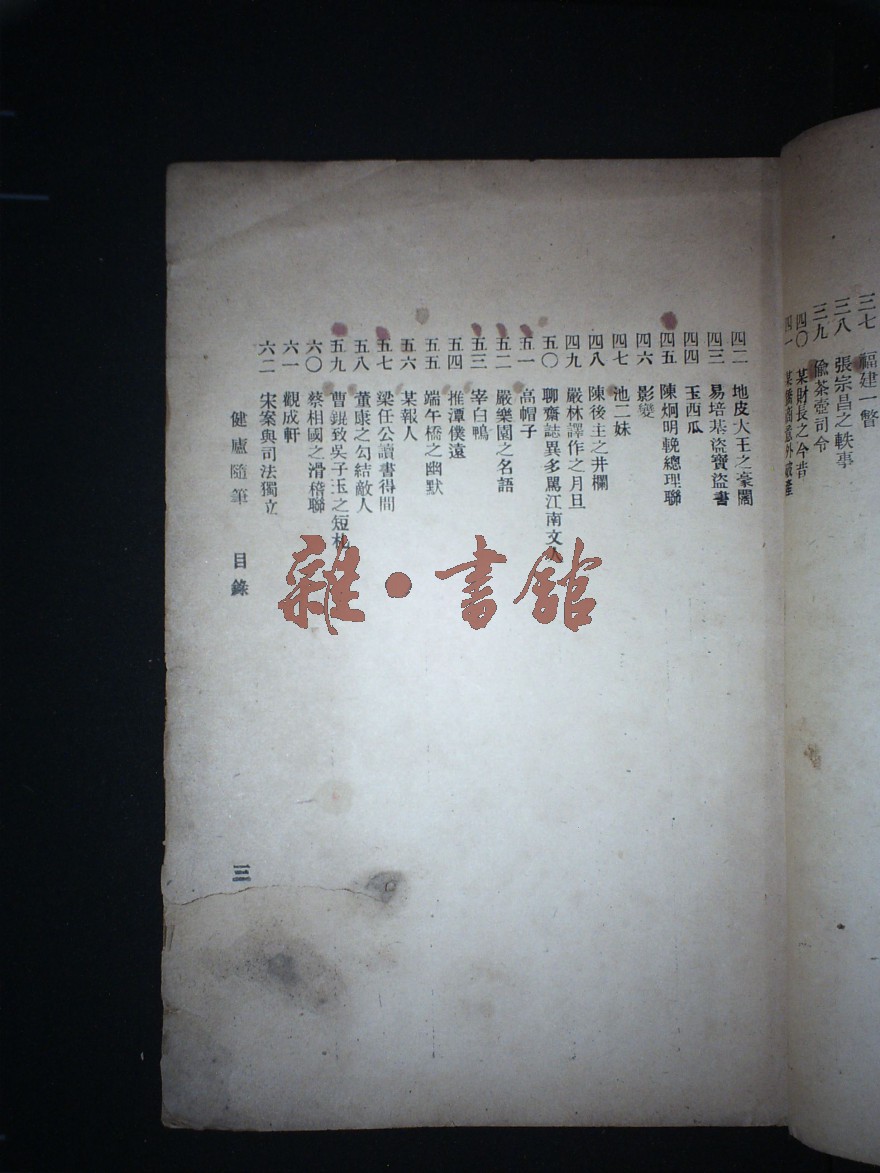 三七 福建一瞥
三八 張宗昌之軼事
三九 偸茶壺司令
四〇 某財長之今昔
四一 某僑商意外破產
四二 地皮大王之豪闊
四三 易培基盜寶盜書
四四 玉西瓜
四五 陳炯明輓總理聯
四六 影變
四七 池二妹
四八 陳後主之井欄
四九 嚴林譯作之月旦
五〇 聊齋誌異多罵江南文人
五一 高帽子
五二 嚴樂園之名語
五三 宰白鴨
五四 推潭僕遠
五五 端午橋之幽默
五六 某報人
五七 梁任公讀書得間
五八 董康之勾結敵人
五九 曹錕致吳子玉之短札
六〇 蔡相國之滑稽聯
六一 觀成軒
六二 宋案與司法獨立
健廬隨筆 目錄
三
雜·書館